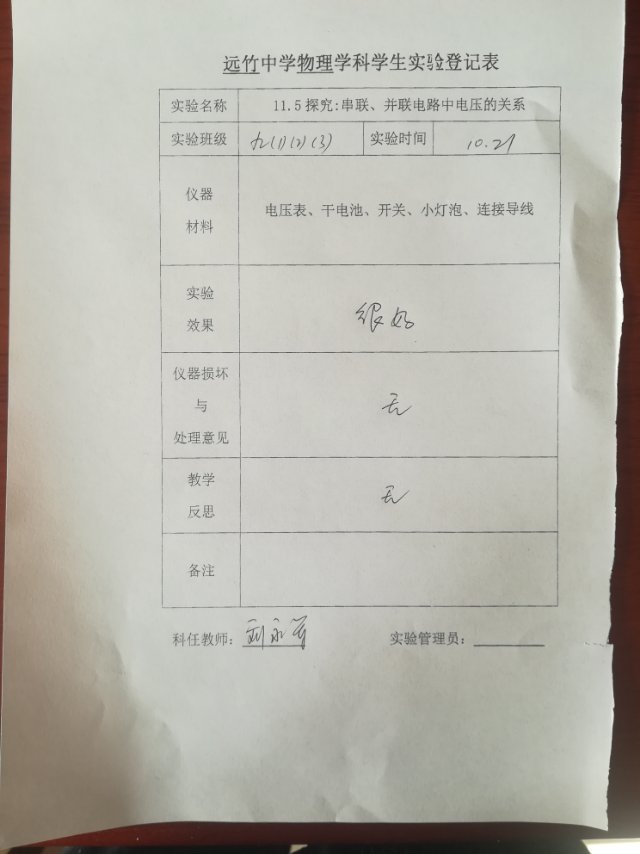 远竹中学物理学科学生实验登记表
实验名称 11.5 探究:串联、并联电路中电压的关系
实验班级 九(1)(2)(3) 实验时间 10.27
仪器
材料
电压表、干电池、开关、小灯泡、连接导线
实验
效果
很好
仪器损坏
与
处理意见
无
教学
反思
无
备注
科任教师: 刘永 实验管理员: